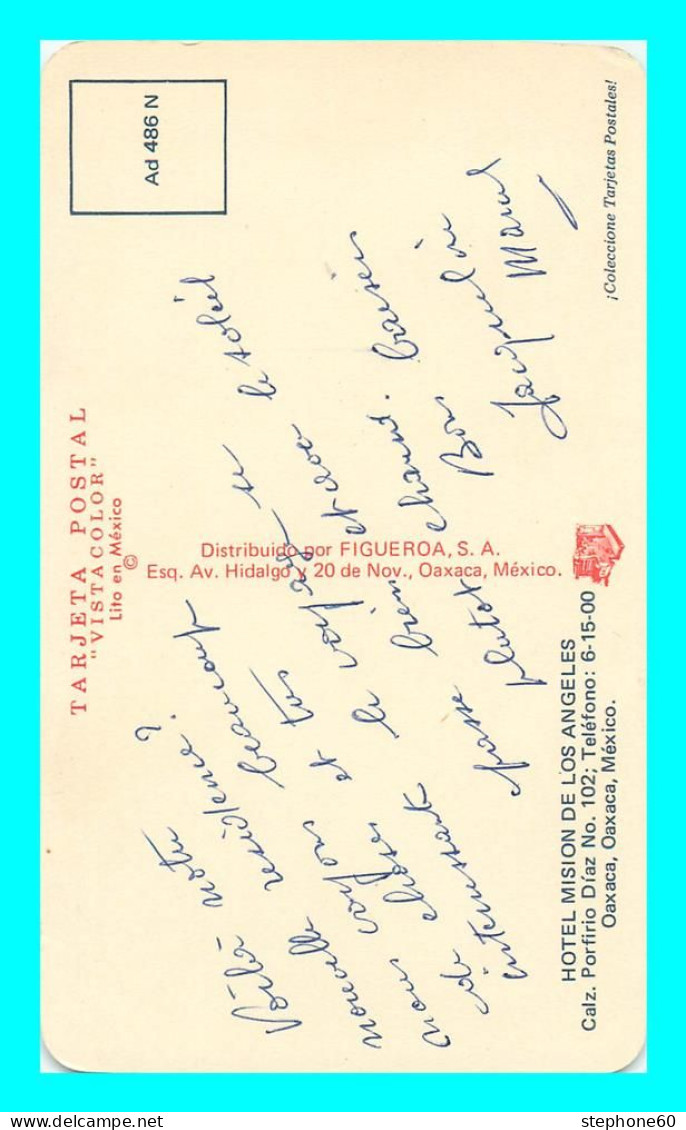 TARJETA POSTAL
"VISTACOLOR"
Lito en México
©
Ad 486 N
Voilà notre
nouvelle résidence?
nous voyons beaucoup
de choses et très
intéressants le voyage se
passe bien et
plutot chaud. Le soleil
Bons baisers
Jacqueline
Marcel
Distribuido por FIGUEROA, S. A.
Esq. Av. Hidalgo y 20 de Nov., Oaxaca, México.
HOTEL MISION DE LOS ANGELES
Calz. Porfirio Díaz No. 102; Teléfono: 6-15-00
Oaxaca, Oaxaca, México.
¡Coleccione Tarjetas Postales!
stephone60